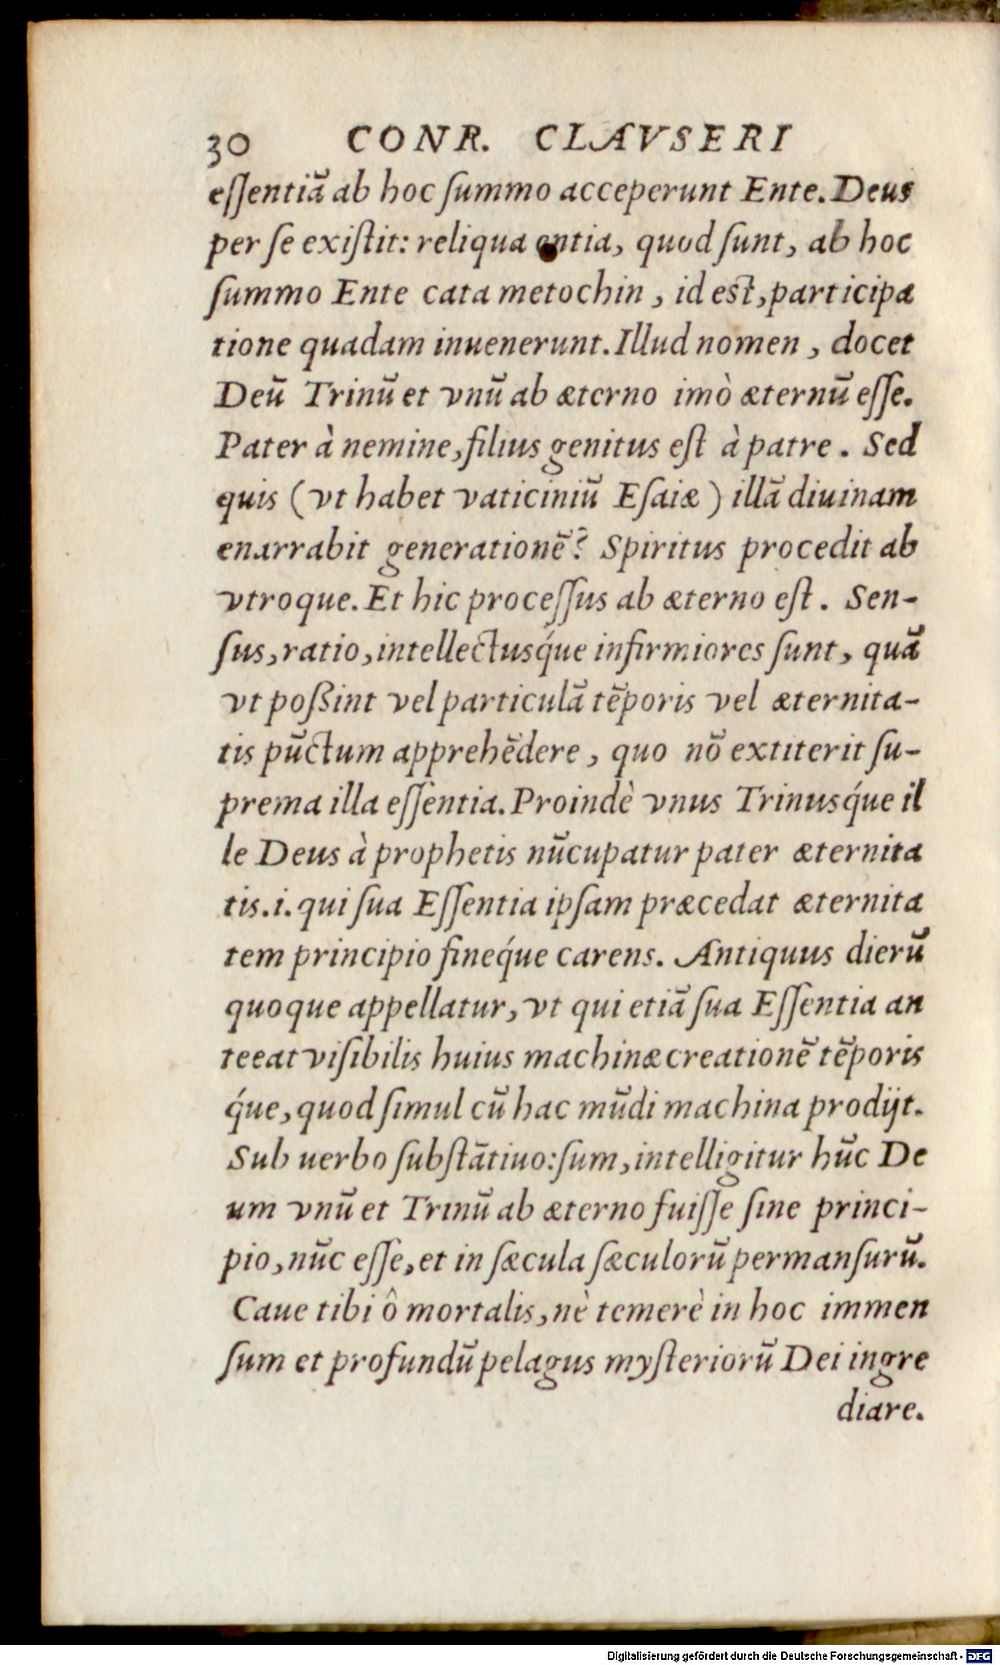 30 CONR. CLAVSERI
eſſentiã ab hoc ſummo acceperunt Ente. Deus
per ſe exiſtit: reliqua entia, quod ſunt, ab hoc
ſummo Ente cata metochin, id eſt, participa
tione quadam inuenerunt. Illud nomen, docet
Deũ Trinũ et vnũ ab æterno imò æternũ eſſe.
Pater à nemine, filius genitus eſt à patre. Sed
quis (vt habet vaticiniũ Eſaiæ) illã diuinam
enarrabit generationẽ? Spiritus procedit ab
vtroque. Et hic proceſſus ab æterno eſt. Sen-
ſus, ratio, intellectusq́ue infirmiores ſunt, quã
vt poßint vel particulã tẽporis vel æternita-
tis pũctum apprehẽdere, quo nõ extiterit ſu-
prema illa eſſentia. Proindè vnus Trinusq́ue il
le Deus à prophetis nũcupatur pater æternita
tis.i. qui ſua Eſſentia ipſam præcedat æternita
tem principio fineq́ue carens. Antiquus dierũ
quoque appellatur, vt qui etiã ſua Eſſentia an
teeat viſibilis huius machinæ creationẽ tẽporis
q́ue, quod ſimul cũ hac mũdi machina prodijt.
Sub uerbo ſubſtãtiuo: ſum, intelligitur hũc De
um vnũ et Trinũ ab æterno fuiſſe ſine princi-
pio, nũc eſſe, et in ſæcula ſæculorũ permanſurũ.
Caue tibi ô mortalis, nè temerè in hoc immen
ſum et profundũ pelagus myſteriorũ Dei ingre
diare.
Digitalisierung gefördert durch die Deutsche Forschungsgemeinschaft - DFG